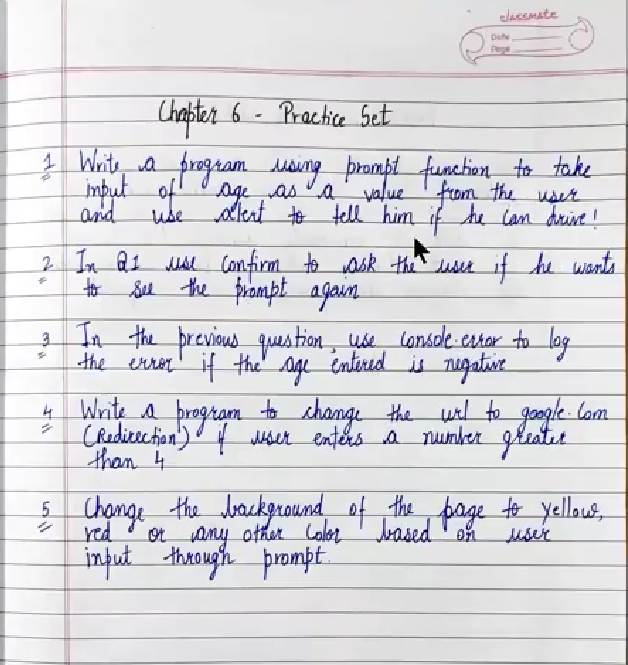 classmate
Date
Page
Chapter 6 - Practice Set
1 Write a program using prompt function to take
input of age as a value from the user
and use alert to tell him if he can drive!
2 In Q1 use confirm to ask the user if he wants
to see the prompt again
3 In the previous question, use console.error to log
the error if the age entered is negative
4 Write a program to change the url to google.com
(Redirection) if user enters a number greater
than 4
5 Change the background of the page to yellow,
red or any other color based on user
input through prompt.